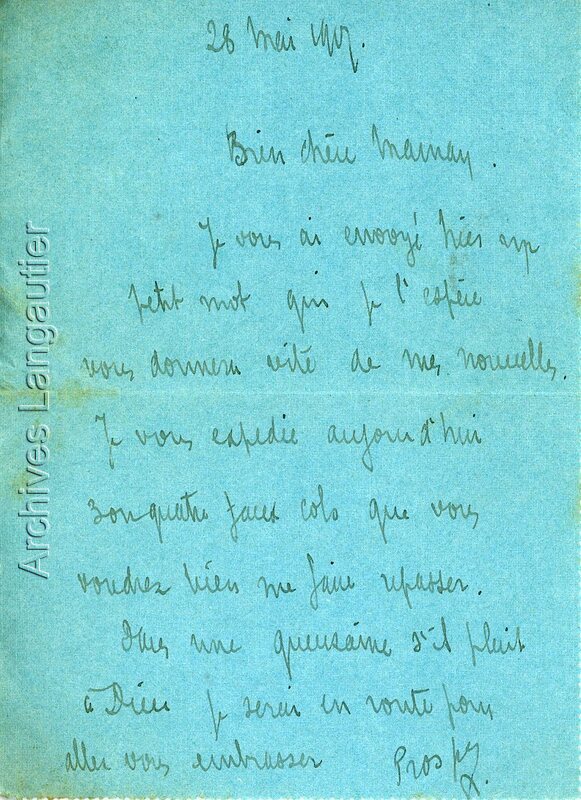 28 Mai 1917.
Bien chère Maman.
Je vous ai envoyé hier un
petit mot qui je l'espère
vous donnera vite de mes nouvelles.
Je vous expedie aujourd'hui
3 ou quatre faux cols que vous
voudrez bien me faire repasser.
Dans une quinzaine s'il plait
à Dieu je serai en route pour
aller vous embrasser
Archives Langautier